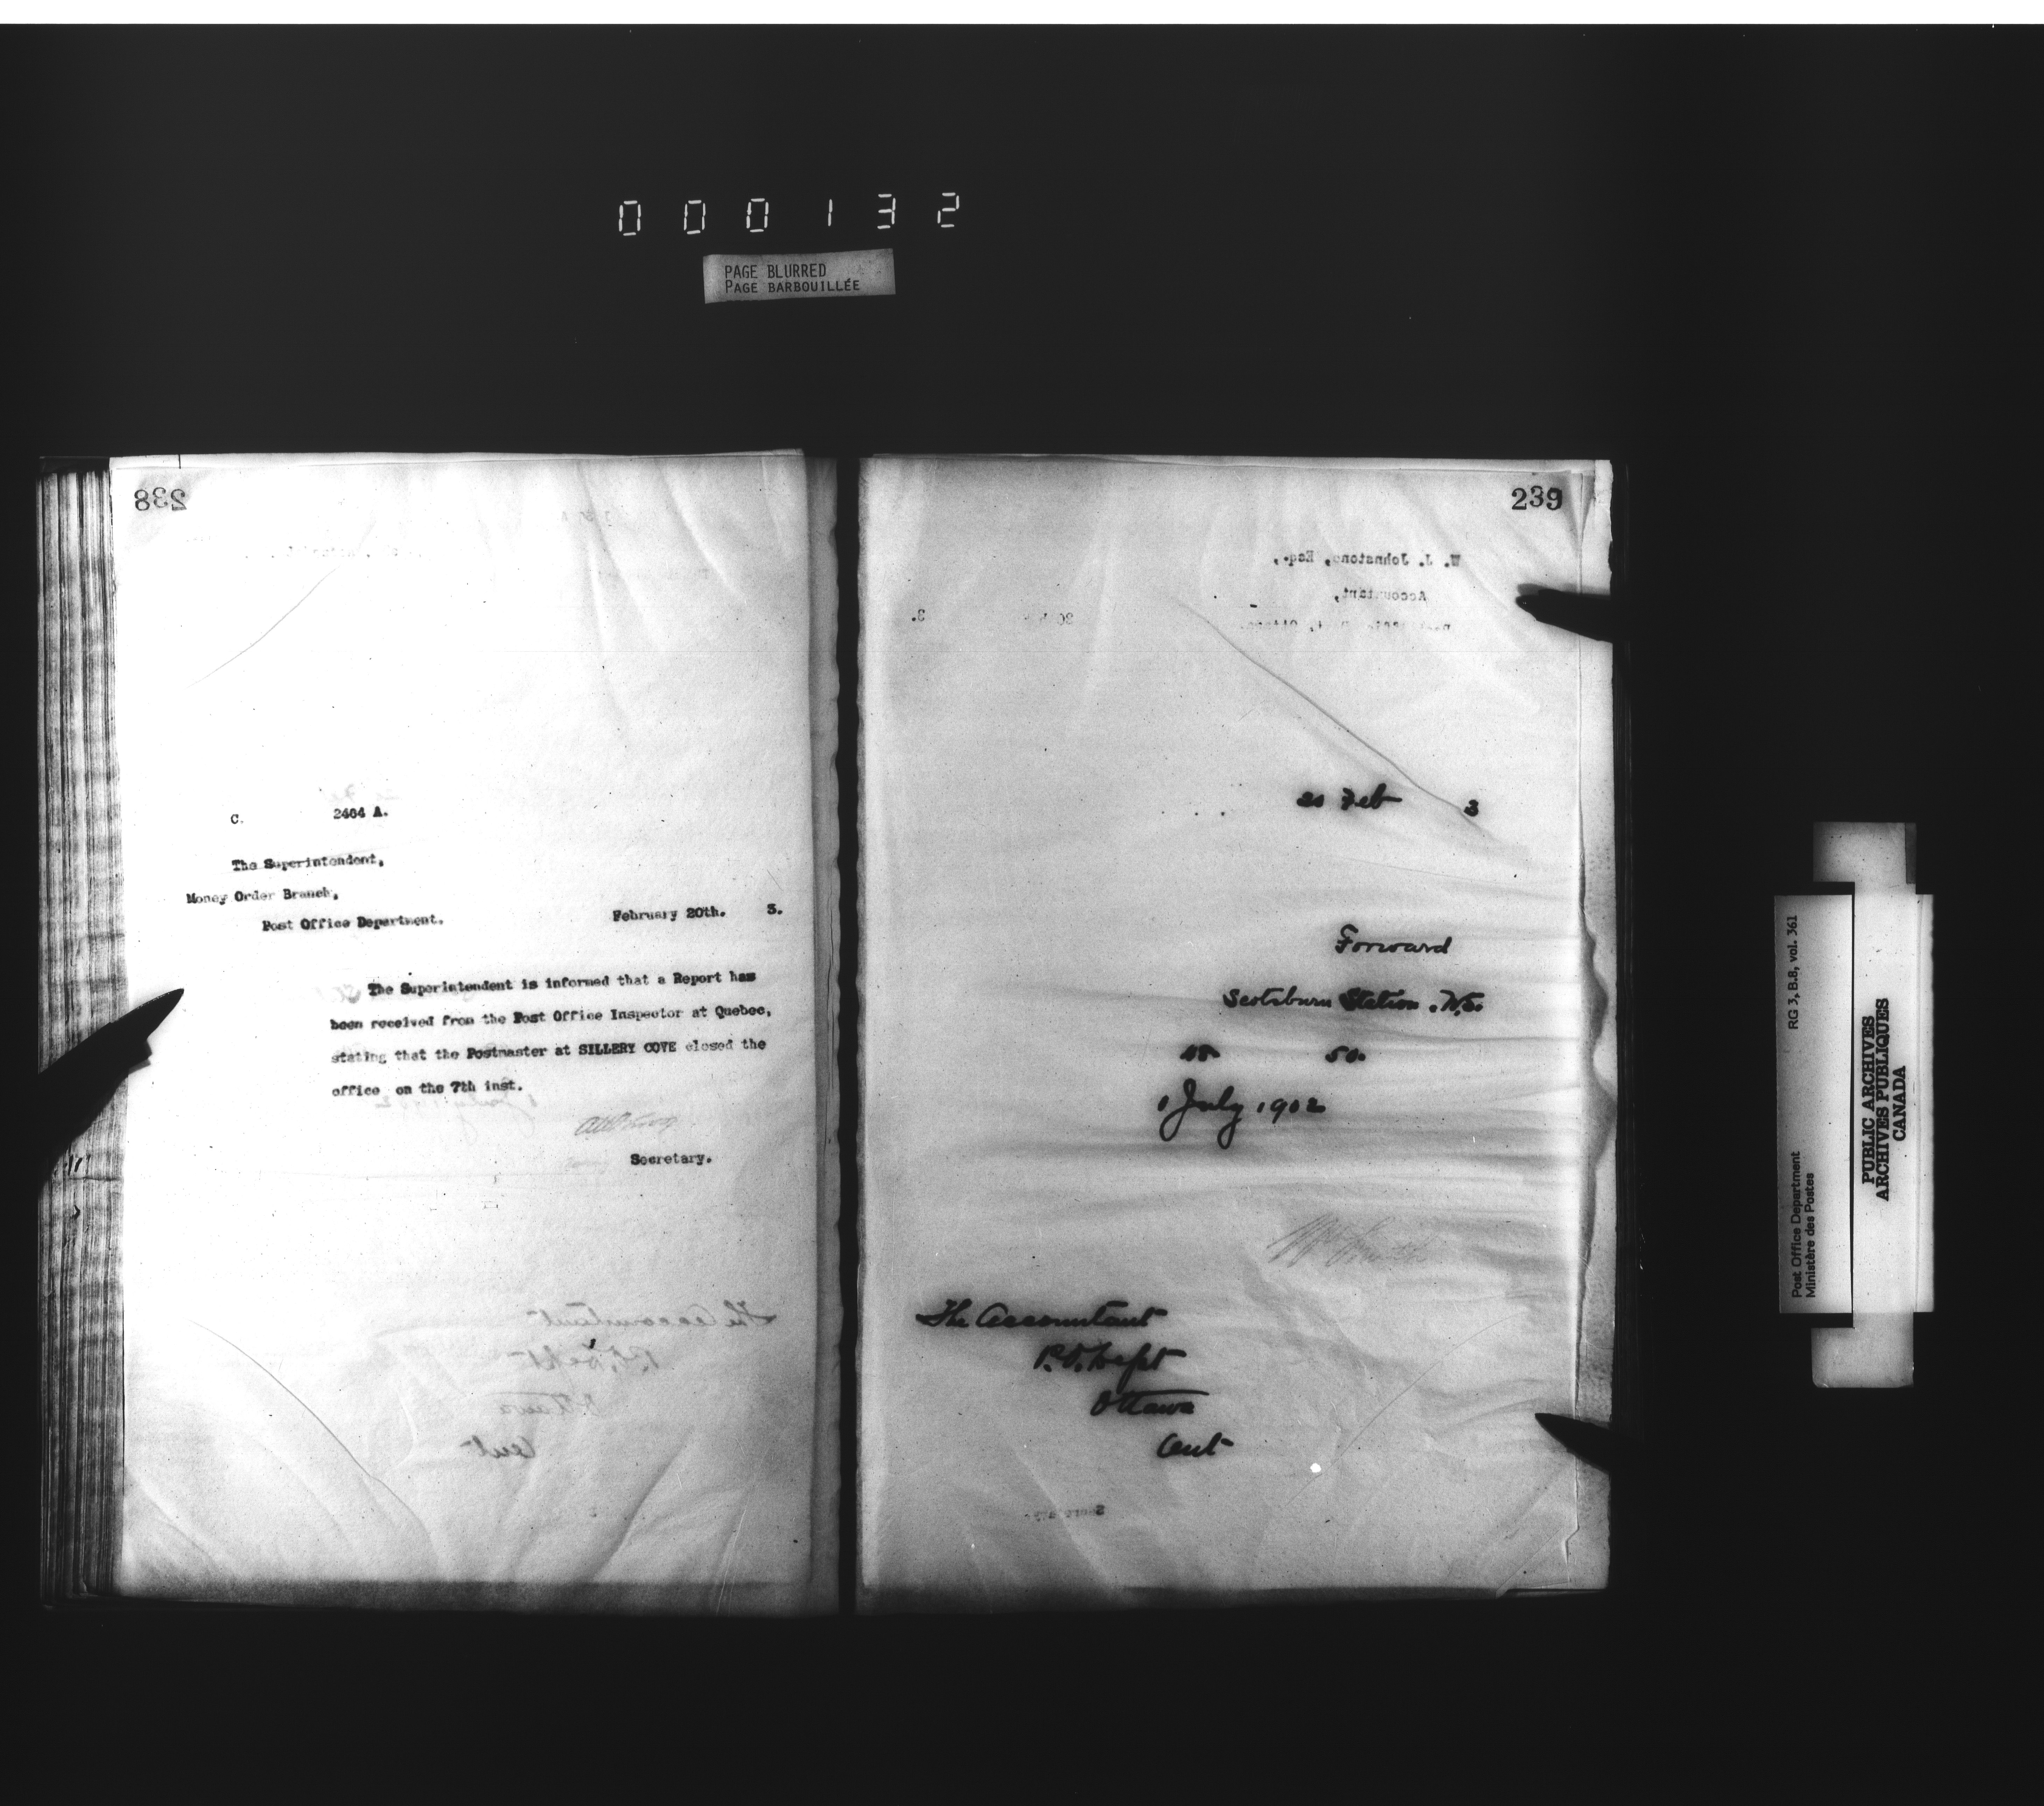 000132
PAGE BLURRED
PAGE BARBOUILLÉE
238
C. 2464 A.
The Superintendent,
Money Order Branch,
Post Office Department. February 20th. 3.
The Superintendent is informed that a Report has
been received from the Post Office Inspector at Quebec,
stating that the Postmaster at SILLERY COVE closed the
office on the 7th inst.
Secretary.
239
W. J. Johnstone, Esq.,
Accountant,
20 Feb 3
Forward
Scotsburn Station . N.S.
50.
1 July 1902
Wm Smith
The Accountant
P.O. Dept
Ottawa
Secretary.
Post Office Department
Ministère des Postes
RG 3, B.8, vol. 361
PUBLIC ARCHIVES
ARCHIVES PUBLIQUES
CANADA